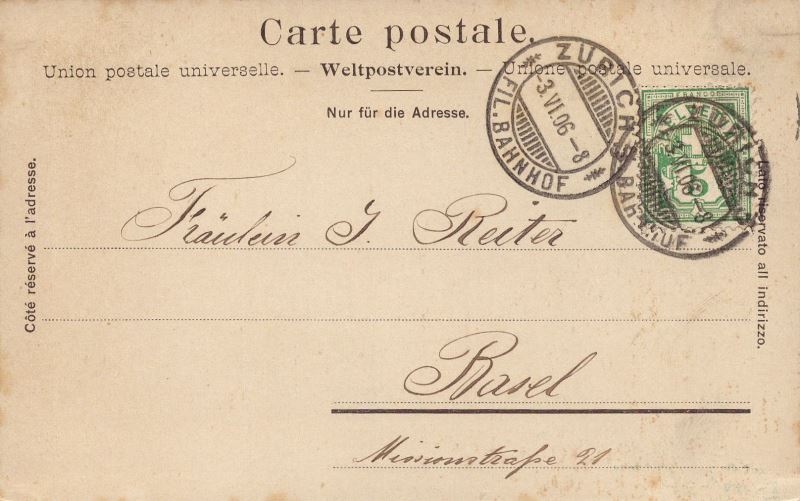 Carte postale.
Union postale universelle. — Weltpostverein. — Unione postale universale.
Nur für die Adresse.
Côté réservé à l'adresse.
Lato riservato all indirizzo.
ZÜRICH
FIL. BAHNHOF
-3.VI.06-8
FRANCO
Fräulein J. Reiter
Basel
Missionstraße 21